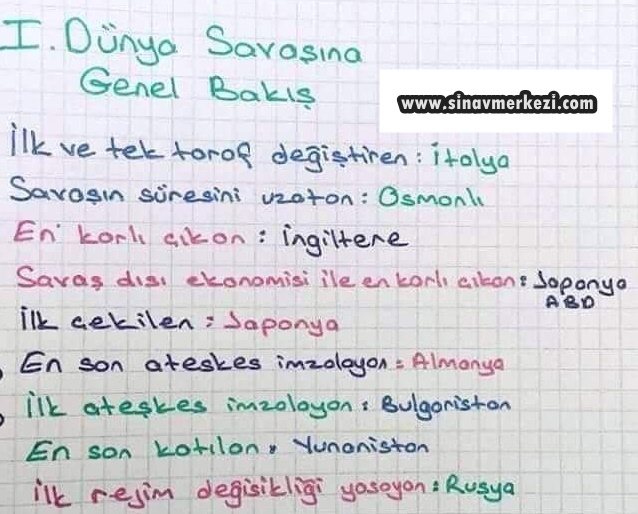 I. Dünya Savaşına
Genel Bakış
www.sinavmerkezi.com
İlk ve tek taraf değiştiren: İtalya
Savaşın süresini uzatan: Osmanlı
En karlı çıkan: İngiltere
Savaş dışı ekonomisi ile en karlı çıkan: Japonya
ABD
İlk çekilen: Japonya
En son ateşkes imzalayan: Almanya
İlk ateşkes imzalayan: Bulgaristan
En son katılan: Yunanistan
İlk rejim değişikliği yaşayan: Rusya